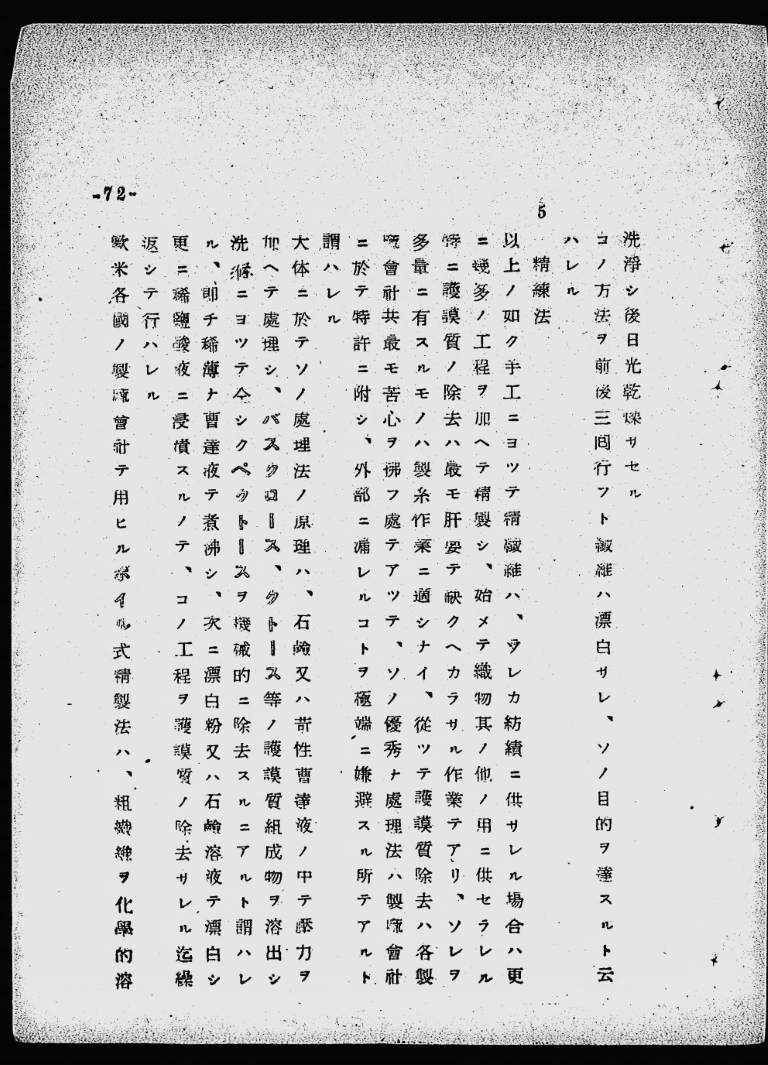 洗淨シ後日光乾燥サセル
コノ方法ヲ前後三囘行フト纎維ハ漂白サレ、ソノ目的ヲ達スルト云
ハレル
5 精練法
以上ノ如ク手工ニヨツテ精纎維ハ、ヲレカ紡績ニ供サレル場合ハ更
ニ幾多ノ工程ヲ加ヘテ精製シ、始メテ織物其ノ他ノ用ニ供セラレル
特ニ護謨質ノ除去ハ最モ肝要テ缺クヘカラサル作業テアリ、ソレヲ
多量ニ有スルモノハ製糸作業ニ適シナイ、從ツテ護謨質除去ハ各製
麻會社共最モ苦心ヲ拂フ處テアツテ、ソノ優秀ナ處理法ハ製麻會社
ニ於テ特許ニ附シ、外部ニ漏レルコトヲ極端ニ嫌避スル所テアルト
謂ハレル
大体ニ於テソノ處理法ノ原理ハ、石鹼又ハ苛性曹達液ノ中テ壓力ヲ
加ヘテ處理シ、バスクロース、クトース等ノ護謨質組成物ヲ溶出シ
洗滌ニヨツテ全シクペクトースヲ機械的ニ除去スルニアルト謂ハレ
ル、卽チ稀薄ナ曹達液テ煮沸シ、次ニ漂白粉又ハ石鹼溶液テ漂白シ
更ニ稀鹽酸液ニ浸漬スルノテ、コノ工程ヲ護謨質ノ除去サレル迄繰
返シテ行ハレル
歐米各國ノ製麻會社テ用ヒルボイル式精製法ハ、粗纎維ヲ化學的溶
-72-